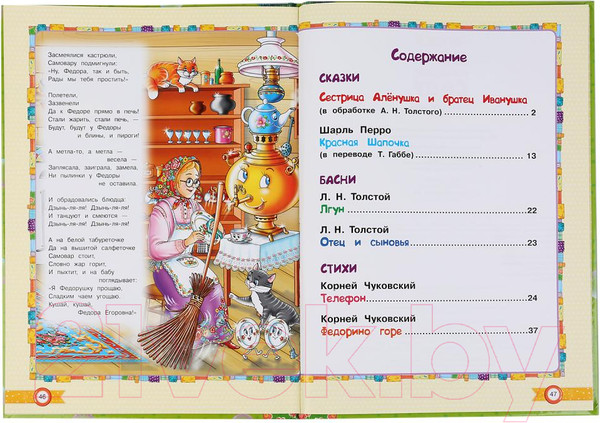 Засмеялися кастрюли,
Самовару подмигнули:
«Ну, Федора, так и быть,
Рады мы тебя простить!»
Полетели,
Зазвенели
Да к Федоре прямо в печь!
Стали жарить, стали печь, —
Будут, будут у Федоры
и блины, и пироги!
А метла-то, а метла —
весела —
Заплясала, заиграла, замела,
Ни пылинки у Федоры
не оставила.
И обрадовались блюдца:
Дзынь-ля-ля! Дзынь-ля-ля!
И танцуют и смеются —
Дзынь-ля-ля! Дзынь-ля-ля!
А на белой табуреточке
Да на вышитой салфеточке
Самовар стоит,
Словно жар горит,
И пыхтит, и на бабу
поглядывает:
«Я Федорушку прощаю,
Сладким чаем угощаю.
Кушай, кушай,
Федора Егоровна!»
46
Содержание
СКАЗКИ
Сестрица Алёнушка и братец Иванушка
(в обработке А. Н. Толстого) 2
Шарль Перро
Красная Шапочка
(в переводе Т. Габбе) 13
БАСНИ
Л. Н. Толстой
Лгун 22
Л. Н. Толстой
Отец и сыновья 23
СТИХИ
Корней Чуковский
Телефон 24
Корней Чуковский
Федорино горе 37
47